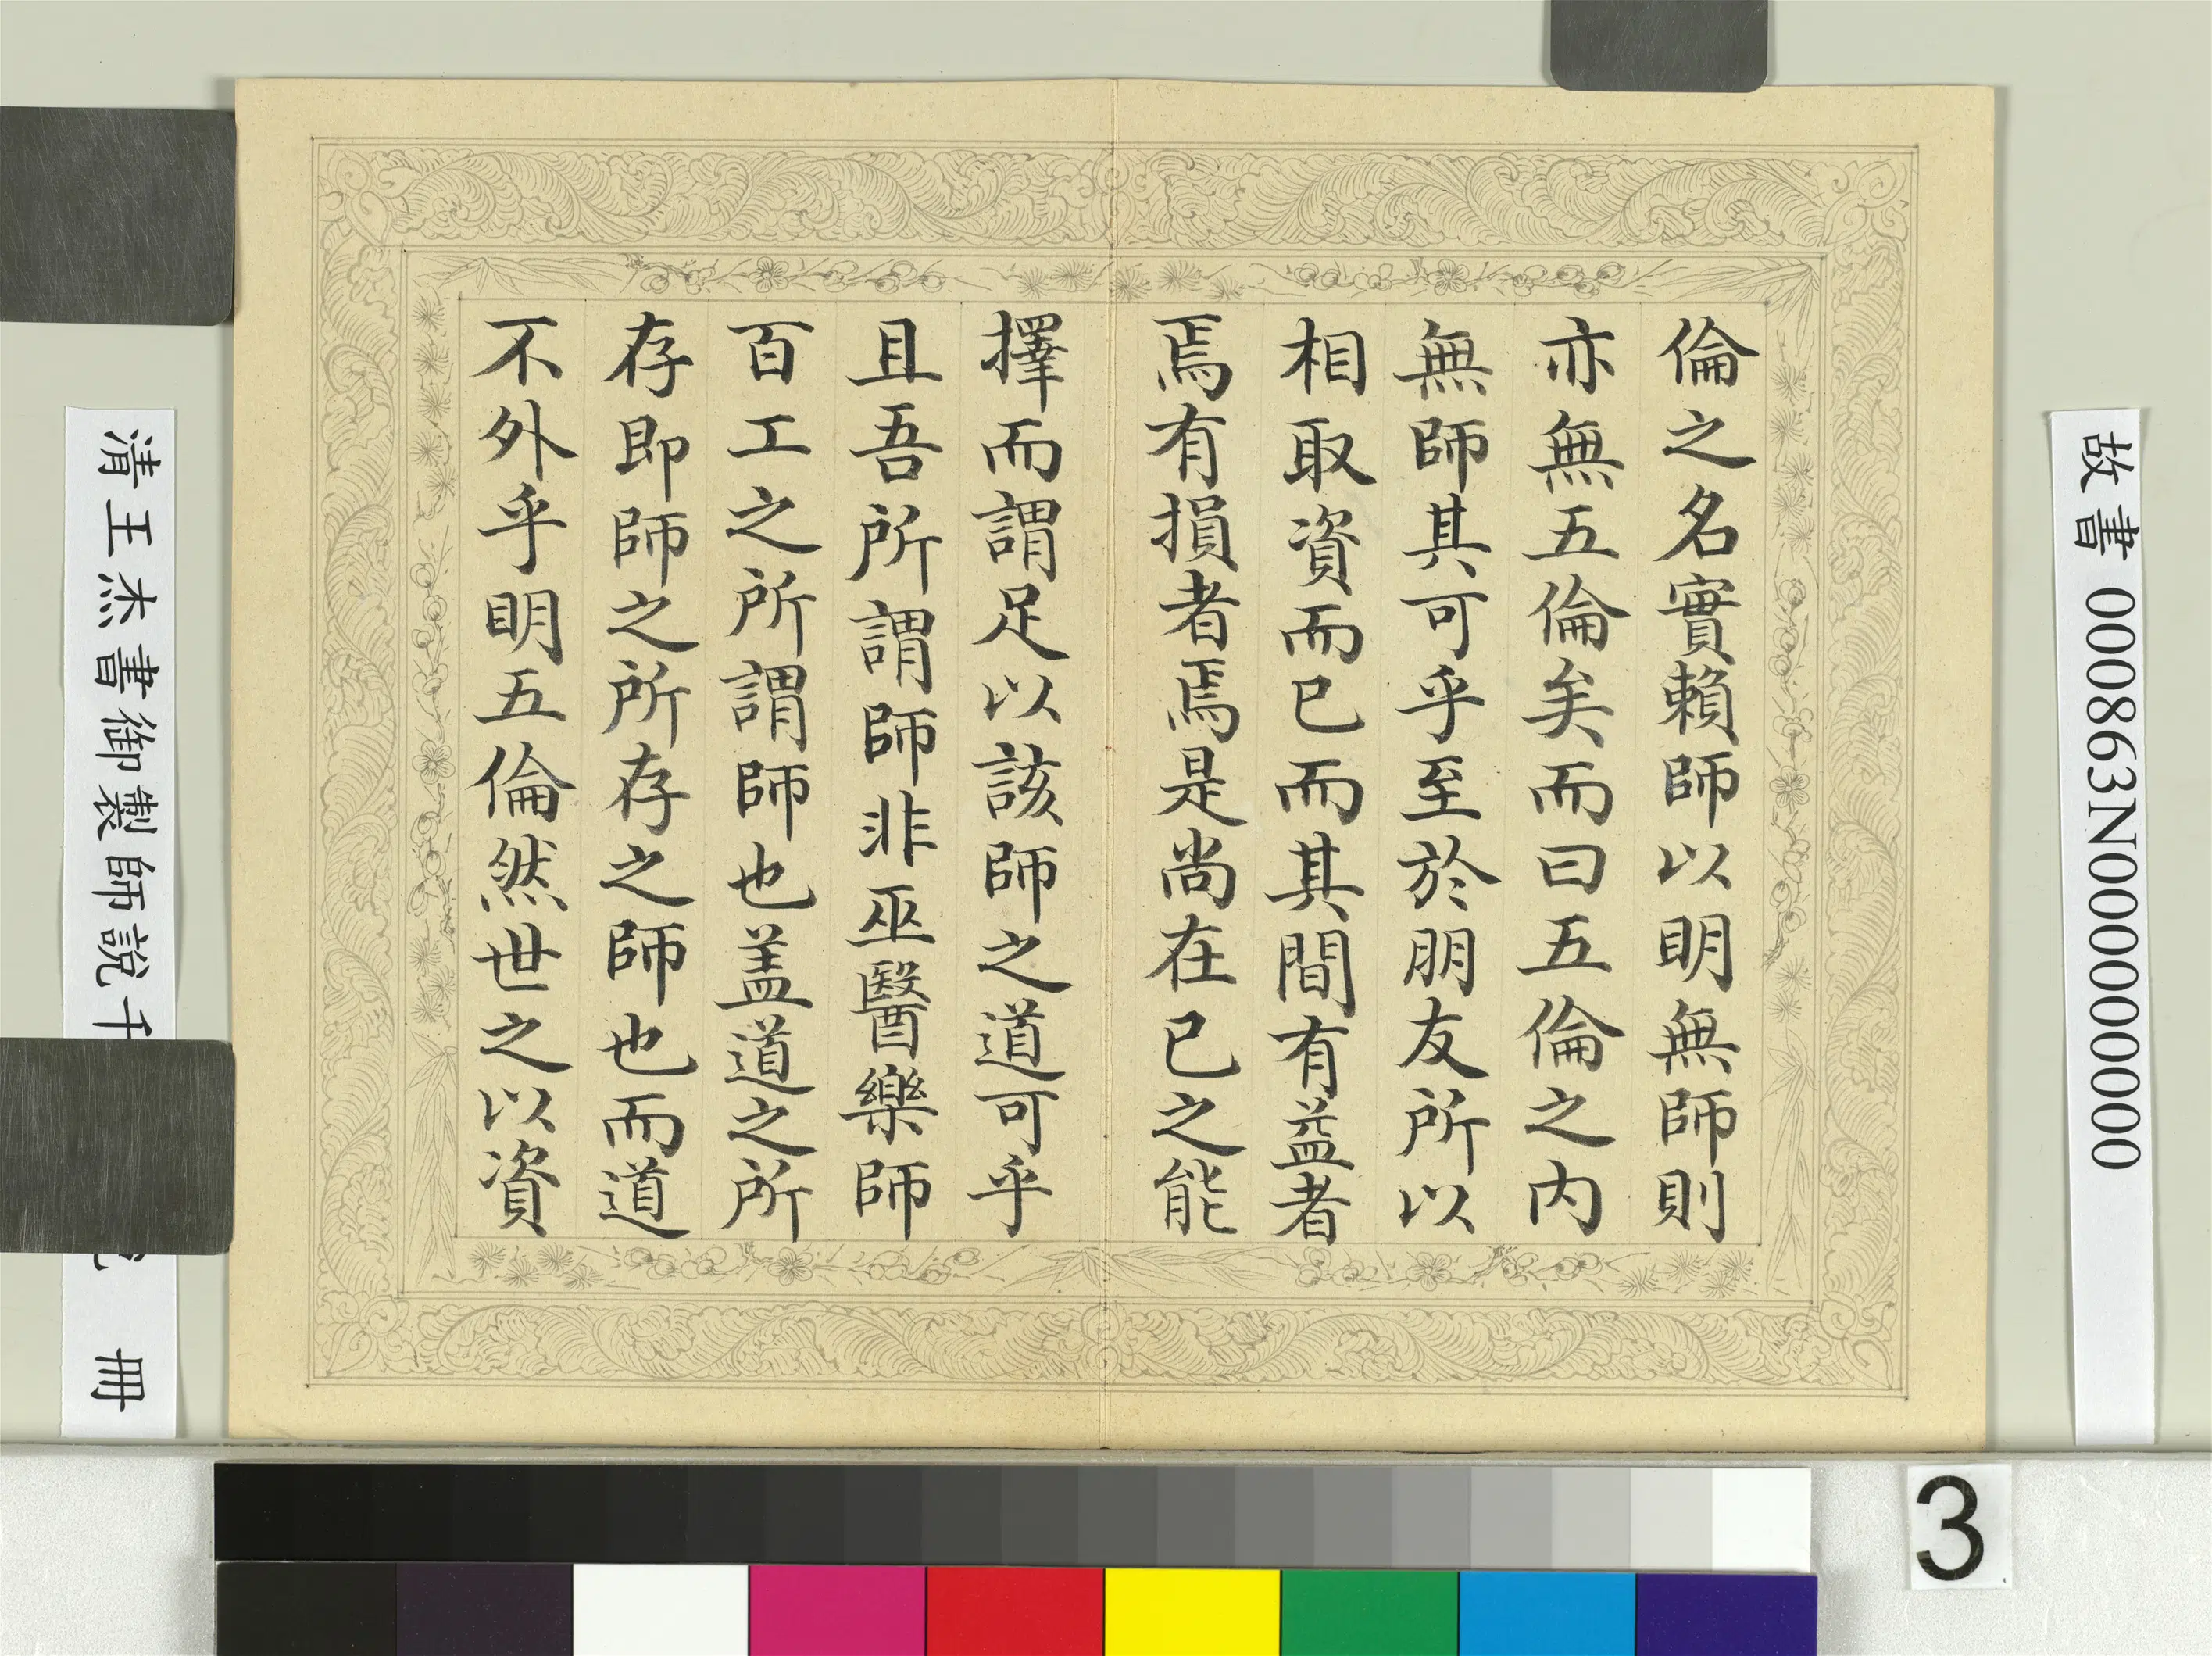 故書 000863N000000000
倫之名實賴師以明無師則
亦無五倫矣而曰五倫之内
無師其可乎至於朋友所以
相取資而已而其間有益者
焉有損者焉是尚在已之能
擇而謂足以該師之道可乎
且吾所謂師非巫醫樂師
百工之所謂師也盖道之所
存即師之所存之師也而道
不外乎明五倫然世之以資
清王杰書御製師說 冊
3